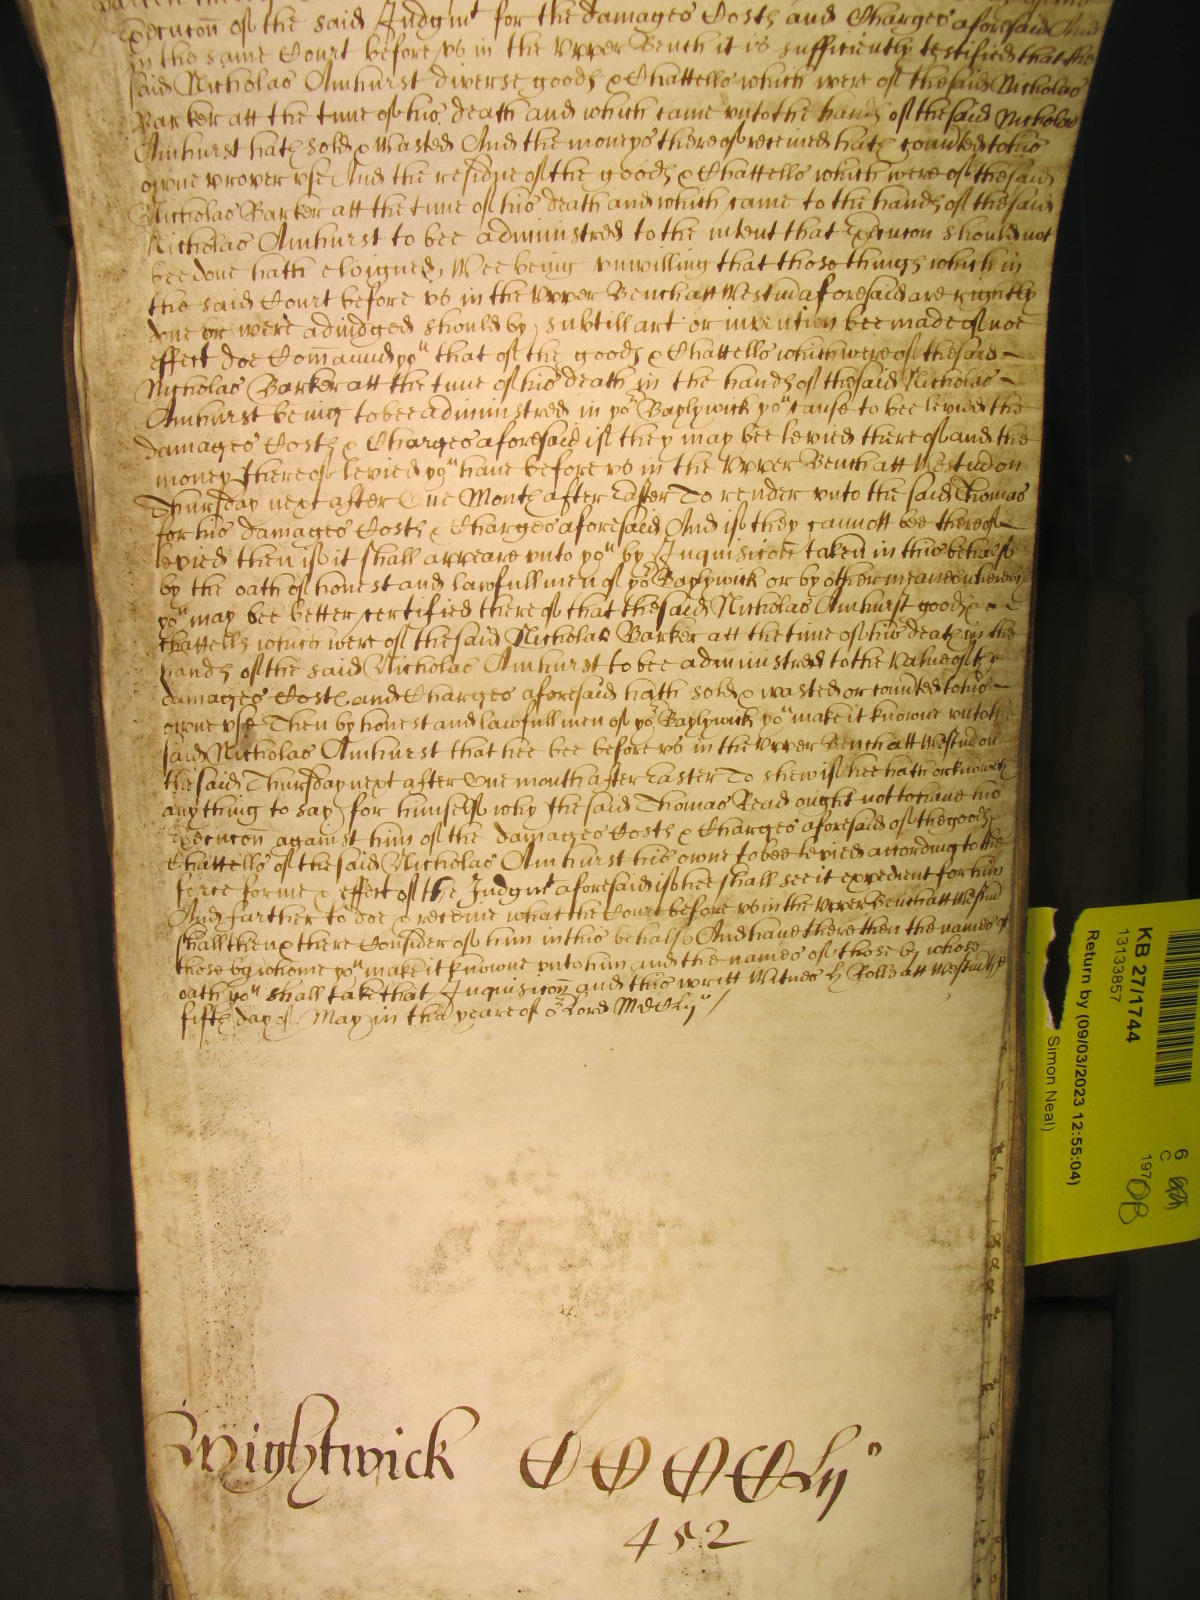 Execucon of the said Judgmt for the damages Costs and Charges aforesaid And
in the same Court before us in the Upper Bench it is sufficiently testified that the
said Nicholas Amhurst diverse goods & Chattells which were of the said Nicholas
Barker att the tyme of his death and which came unto the hands of the said Nicholas
Amhurst hath sold & wasted And the moneys thereof received hath convted to his
owne proper use And the residue of the goods & Chattells which were of the said
Nicholas Barker att the tyme of his death and which came to the hands of the said
Nicholas Amhurst to bee administred to the intent that Execucon should not
bee done hath eloigned, Wee being unwilling that those things which in
the said Court before us in the Upper Bench att Westm aforesaid are rightly
done or were adiudged should by subtill art or invention bee made of noe
effect doe Comaund you that of the goods & Chattells which were of the said
Nicholas Barker att the tyme of his death in the hands of the said Nicholas
Amhurst being to bee administred in yor Baylywick you cause to bee levied the
damages Costs & Charges aforesaid if they may bee levied thereof and the
money thereof levied you have before us in the Upper Bench att Westm on
Thursday next after One Month after Easter To render unto the said Thomas
for his damages Costs & Charges aforesaid And if they cannott bee thereof
levied then if it shall appeare unto you by Inquisicon taken in this behalf
by the oath of honest and lawfull men of yor Baylywick or by other meanes whereby
you may bee better certified thereof that the said Nicholas Amhurst goods &
Chattells which were of the said Nicholas Barker att the time of his death in the
hands of the said Nicholas Amhurst to bee administred to the value of the
damages Costs and Charges aforesaid hath sold & wasted or convted to his
owne use Then by honest and lawfull men of yor Baylywick you make it knowne unto the
said Nicholas Amhurst that hee bee before us in the Upper Bench att Westm on
the said Thursday next after One month after Easter To shew if hee hath or knoweth
any thing to say for himself why the said Thomas Read ought not to have his
Execucon against him of the damages Costs & Charges aforesaid of the goods &
Chattells of the said Nicholas Amhurst his owne to bee levied according to the
force forme & effect of the Judgmt aforesaid if hee shall see it expedient for him
And farther to doe & receive what the Court before us in the Upper Bench att Westm
shall then & there Consider of him in this behalf And have there then the names of
those by whome you make it knowne unto him and the names of those by whose
oath you shall take that Inquisicon and this writt Witnes H Rolle att Westm the
fifth day of May in the yeare of or Lord MDCLij
Wightwick CCCCLij
452
KB 27/1744
13133857
Return by (09/03/2023 12:55:04)
Simon Neal)
6
C
197